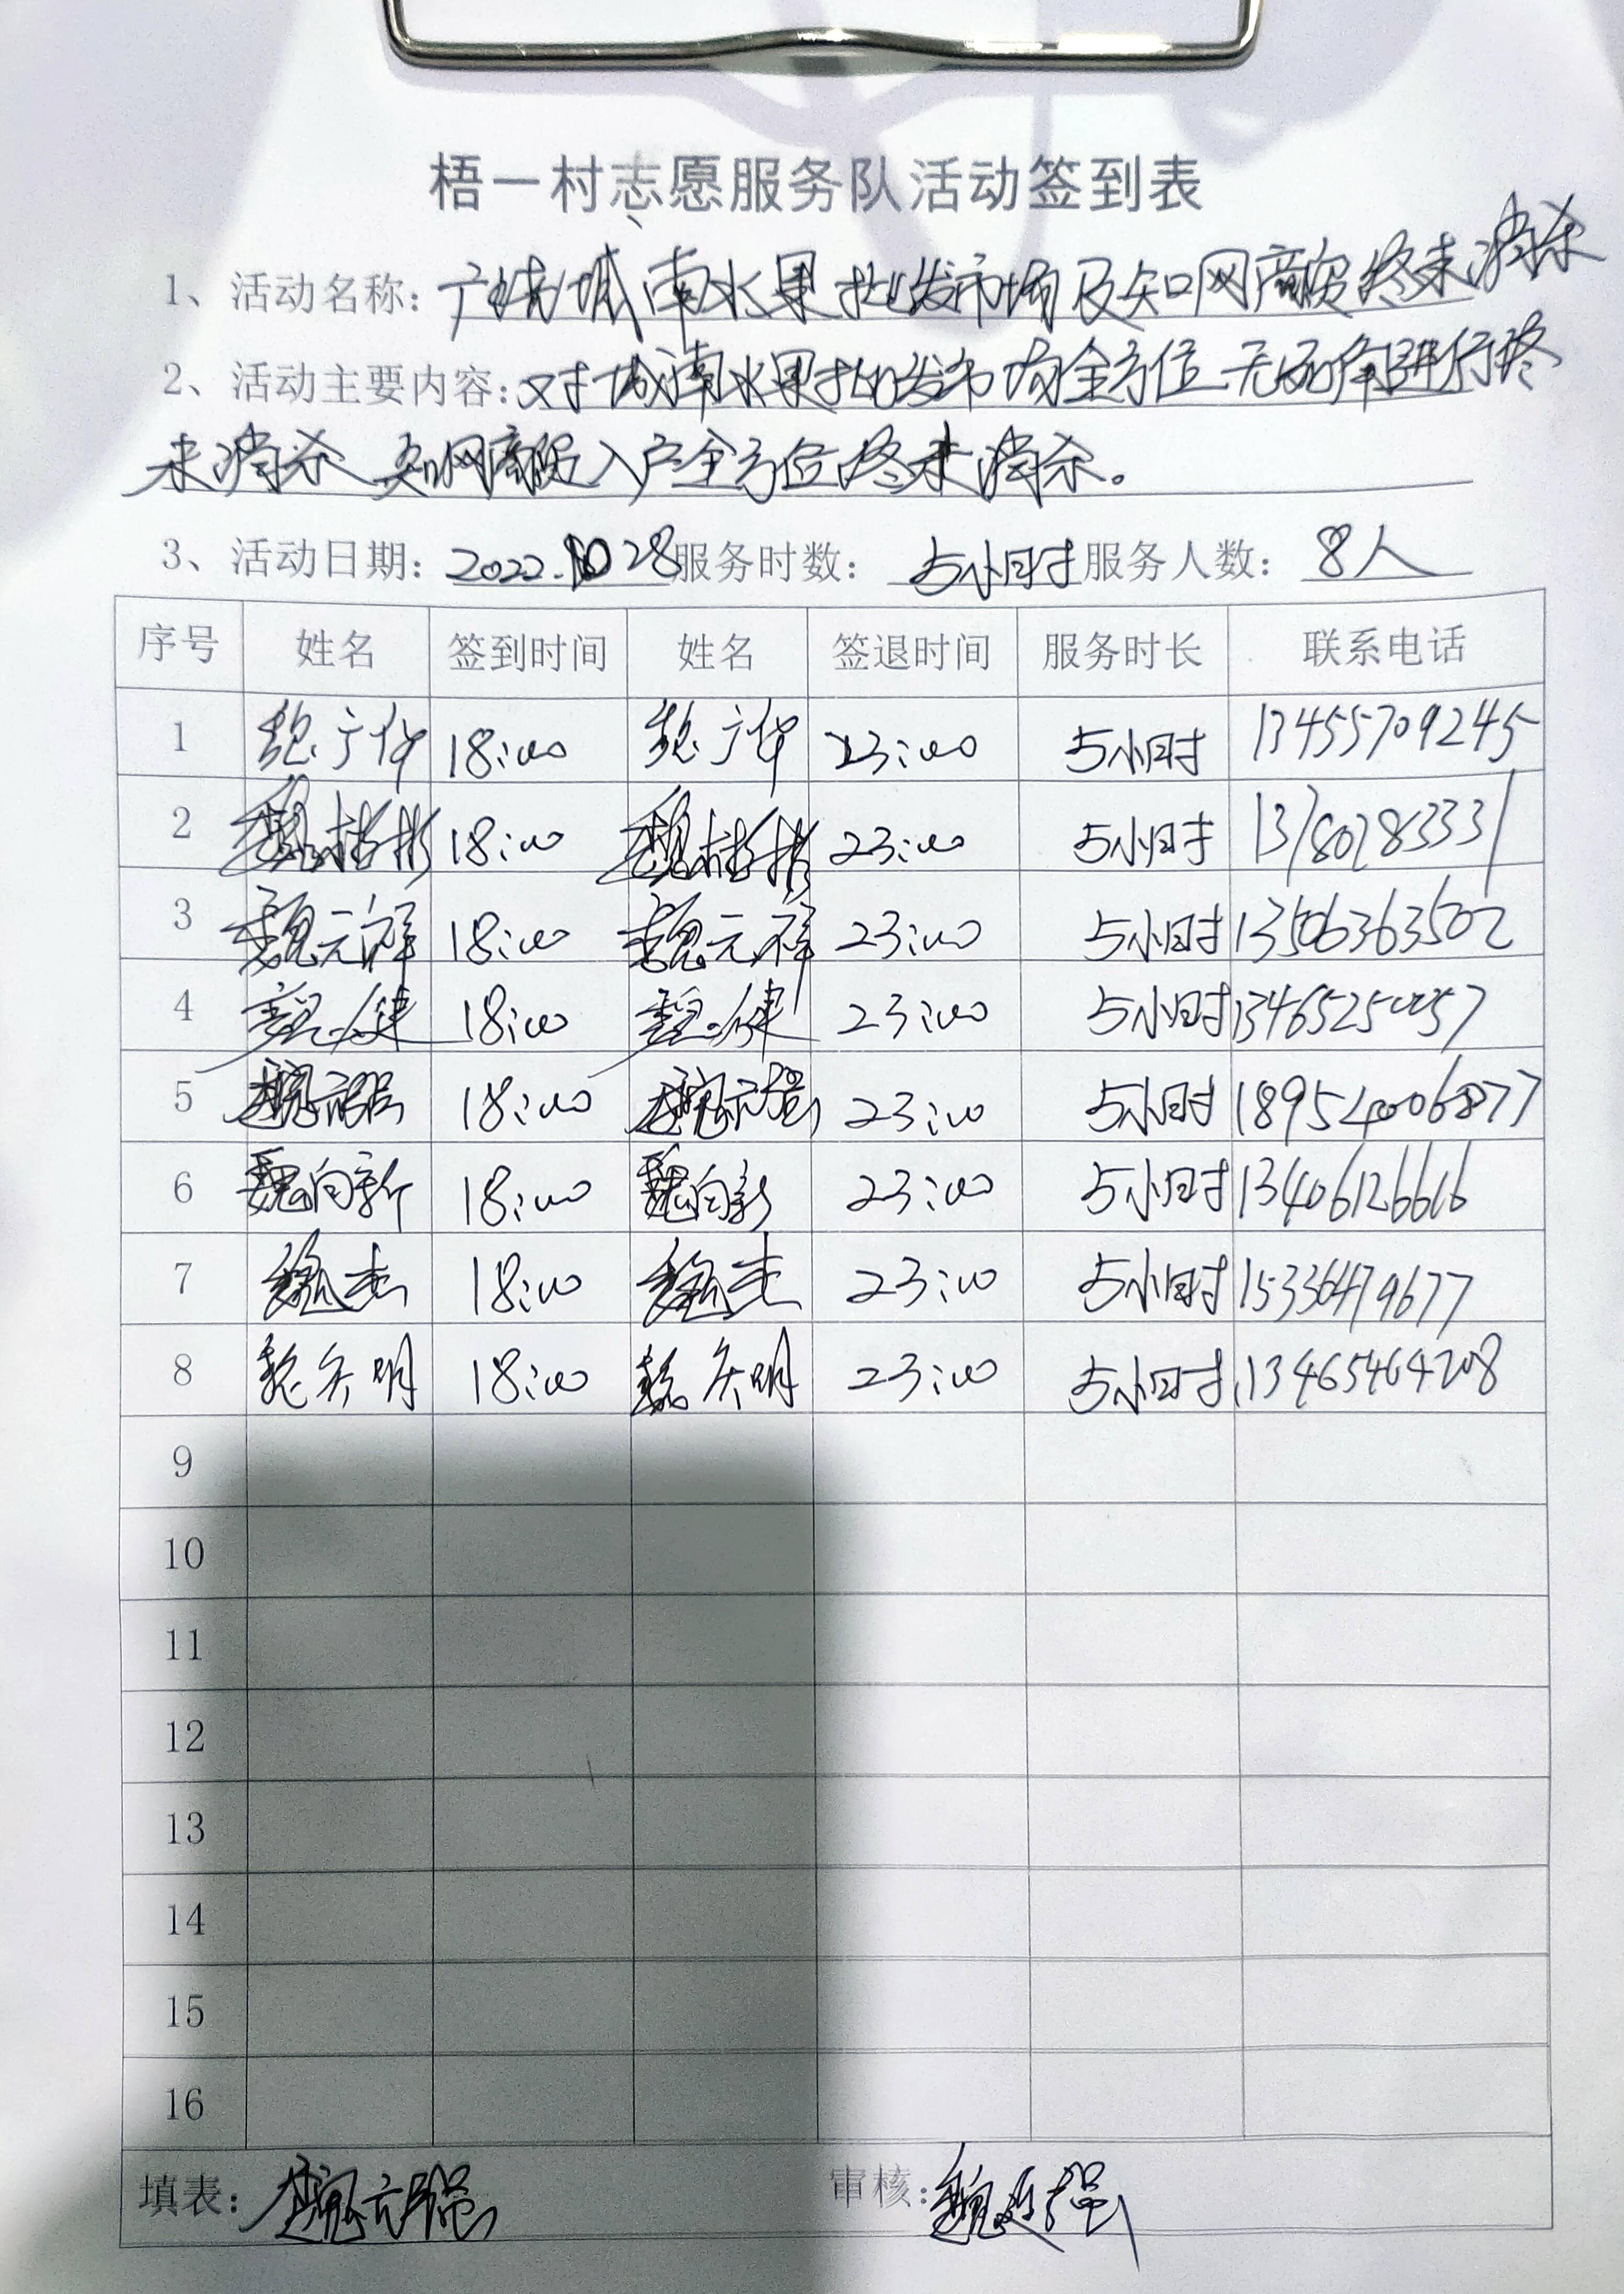 梧一村志愿服务队活动签到表
1、活动名称: 广饶城南水果批发市场及知网商贸终末消杀
2、活动主要内容: 对城南水果批发市场全方位无死角进行终
末消杀 知网商贸入户全方位终末消杀。
3、活动日期: 2022.10 28 服务时数: 5小时 服务人数: 8人
序号 姓名 签到时间 姓名 签退时间 服务时长 联系电话
1 魏广华 18:00 魏广华 23:00 5小时 13455709245
2 魏 18:00 魏 23:00 5小时 13780783331
3 魏元祥 18:00 魏元祥 23:00 5小时 13506363502
4 魏健 18:00 魏健 23:00 5小时 13465250057
5 魏元强 18:00 魏元强 23:00 5小时 18954006877
6 魏向新 18:00 魏向新 23:00 5小时 13406126616
7 魏杰 18:00 魏杰 23:00 5小时 15336479677
8 魏明 18:00 魏明 23:00 5小时 13465464208
9
10
11
12
13
14
15
16
填表: 魏元强 审核: 魏强